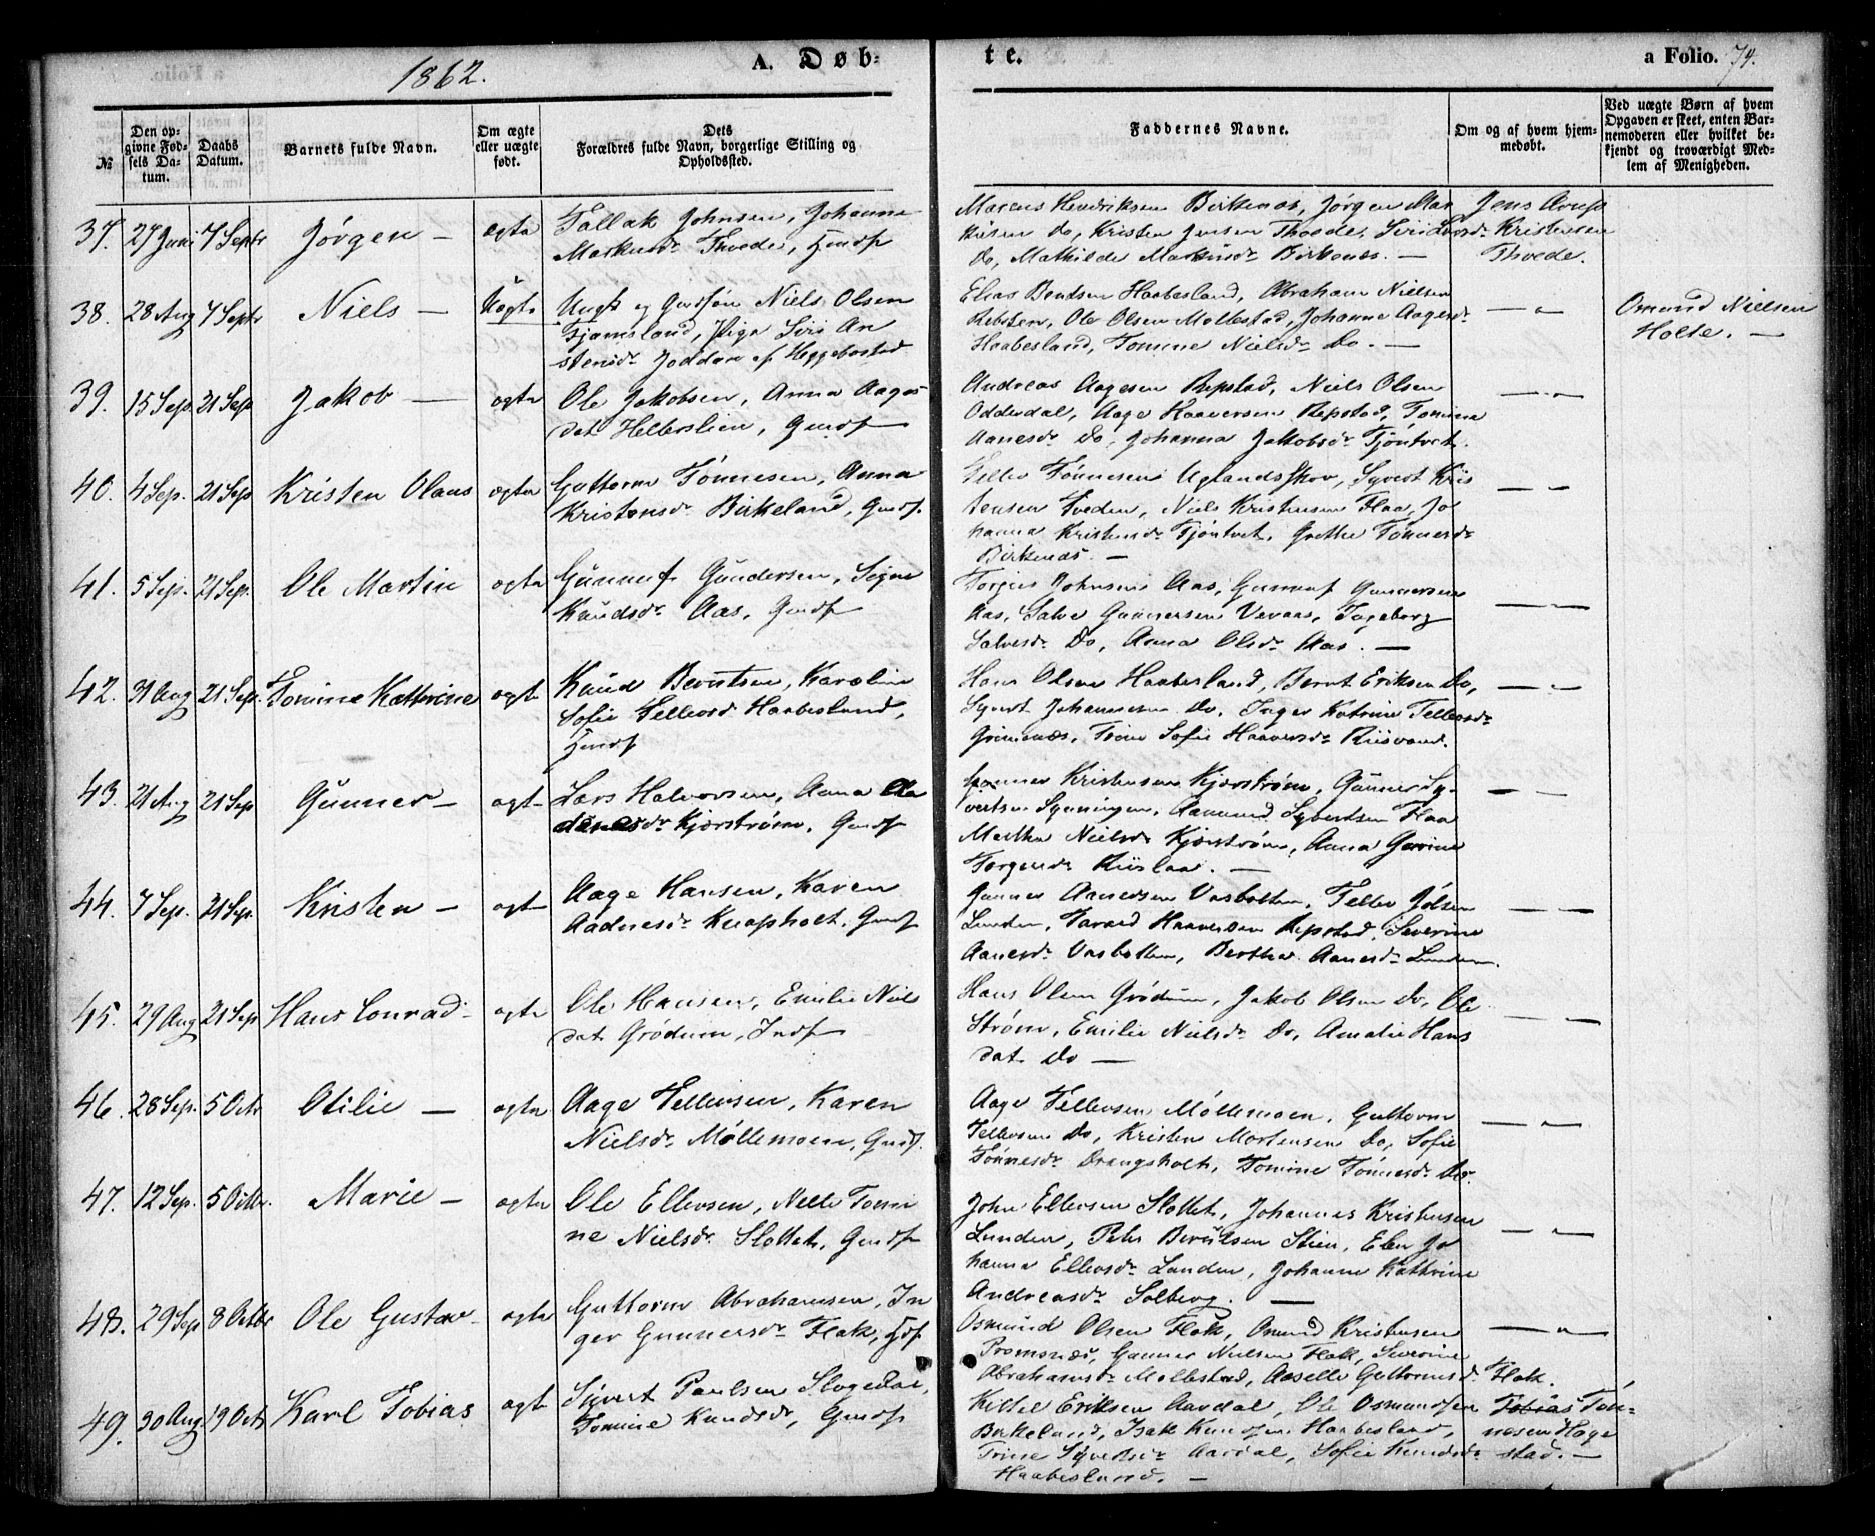 1862.
A. Døb-
te.
a Folio. 74.
№
Den op-
givne Fød-
sels Da-
tum.
Daabs
Datum.
Barnets fulde Navn.
Om ægte
eller uægte
født.
Dets
Forældres fulde Navn, borgerlige Stilling og
Opholdssted.
Faddernes Navne.
Om og af hvem hjem-
medøbt.
Ved uægte Børn af hvem
Opgaven er skeet, enten Bar-
nemoderen eller hvilket be-
kjendt og troværdigt Med-
lem af Menigheden.
37. 27 Juni 7 Septr Jørgen — ægte
Tallak Johnsen, Johanne
Markusdr Thvede, Gmdf
Marcus Hendriksen Birkenæs, Jørgen Mar
kusen do, Kristen Jensen Thvede, Siri
do, Mathilde Markusdr Birkenæs. —
Jens
Kristensen
Thvede.
38. 28 Aug 7 Septr Niels — Uægte
Ungk og Gmdsøn Niels Olsen
Tjomsland, Pige Siri An
stensdr Joddan af Heggebostad
Elias Bentsen Haabesland, Abraham Nielsen
Rebsten, Ole Olsen Mollestad, Johanne Aagesdr
Haabesland, Tomine Nielsdr Do. —
— " —
Omund Nielsen
Holte. —
39. 15 Sep. 21 Sep Jakob — ægte
Ole Jakobsen, Anna Aages
dat Helleslien, Gmdf
Andreas Aagesen Repstad, Niels Olsen
Oddersdal, Aage Haaversen Repstad, Tomine
Aanesdr Do, Johanna Jakobsdr Tjøntvet.
— " —
40. 4 Sep. 21 Sep Kristen Olaus ægte
Guttorm Tønnesen, Anna
Kristensdr Birkeland, Gmdf.
Tellev Tønnesen Uglandsskov, Syvert Kris
tensen Tveden, Niels Kristensen Flaa, Jo
hanna Kristensdr Tjøntvet, Grethe Tønnesdr
Birkenæs. —
— " —
41. 5 Sep. 21 Sep. Ole Martin ægte
Gunnuf Gundersen, Signe
Knudsdr Aas, Gmdf
Torgius Johnsen Aas, Gunnuf Gunnersen
Aas, Salve Gunnersen Vevaas, Ingeborg
Salvesdr Do, Anna Olsdr Aas. —
— " —
42. 31 Aug 21 Sep. Tomine Kathrine ægte
Knud Berntsen, Karoline
Sofie Tellevsd Haabesland,
Gmdf
Hans Olsen Haabesland, Bernt Eriksen Do,
Syvert Johannesen Do, Inger Katrine Tellevsdr
Grimenæs, Trine Sofie Haaversdr Risvand.
— " —
43. 21 Aug 21 Sep Gunner — ægt
Lars Halvorsen, Anna Aa
danesdr Kjorstrøm, Gmdf
Gunner Kristensen Kjorstrøm, Gunner Sy-
vertsen Synningen, Aamund Syvertsen Flaa
Martha Nielsdr Kjorstrøm, Anna Gurine
Torgensdr Rislaa. —
— " —
44. 7 Sep. 21 Sep. Kristen — ægt
Aage Hansen, Karen
Aadnesdr Knapholt, Gmdf
Gunner Aanensen Vasbotten, Tellev Jølsen
Lunden, Tarald Haaversen Repstad, Severine
Aanesdr Vasbotten, Berthe Aanesdr Lunden.
— " —
45. 29 Aug 21 Sep Hans Conrad ægte
Ole Hansen, Emilie Niels
dat Grødum, Indf
Hans Olsen Grødum, Jakob Olsen Do, Ole
Strøm, Emilie Nielsdr Do, Amalie Hans
dat Do —
— " —
46. 28 Sep. 5 Octr Otilie — ægte
Aage Tellevsen, Karen
Nielsdr Møllemoen, Gmdf.
Aage Tellevsen Møllemoen, Guttorm
Tellevsen Do, Kristen Mortensen Do, Sofie
Tønnesdr Drangsholt, Tomine Tønnesdr Do.
— " —
47. 12 Sep. 5 Octbr. Marie — ægte
Ole Ellevsen, Nelle Tomi
ne Nielsdr Slottet, Gmdf
John Ellevsen Slottet, Johannes Kristensen
Lunden, Peter Berntsen Stien, Elen Jo
hanna Ellevsdr Lunden, Johanne Kathrine
Andreasdr Solberg. —
— " —
48. 29 Sep 8 Octbr Ole Gustav ægte
Guttorm Abrahamsen, In
ger Gunnersdr Flak, Gdf
Osmund Olsen Flak, Omund Kristensen
Præmsnæs, Gunner Nielsen Flak, Severine
Abrahamsdr Mollestad, Aaselle Guttormsdr Flak.
— " —
49. 30 Aug 19 Octr Karl Tobias ægt
Syvert Paulsen Slogedal,
Tomine Knudsdr, Gmdf
Kittel Eriksen Aardal, Ole Osmundsen
Birkeland, Isak Knudsen Haabesland,
Trine Syvertsdr Aardal, Sofie Knudsdr
Haabesland. —
Tobias Tøn-
nesen Hage
stad. —